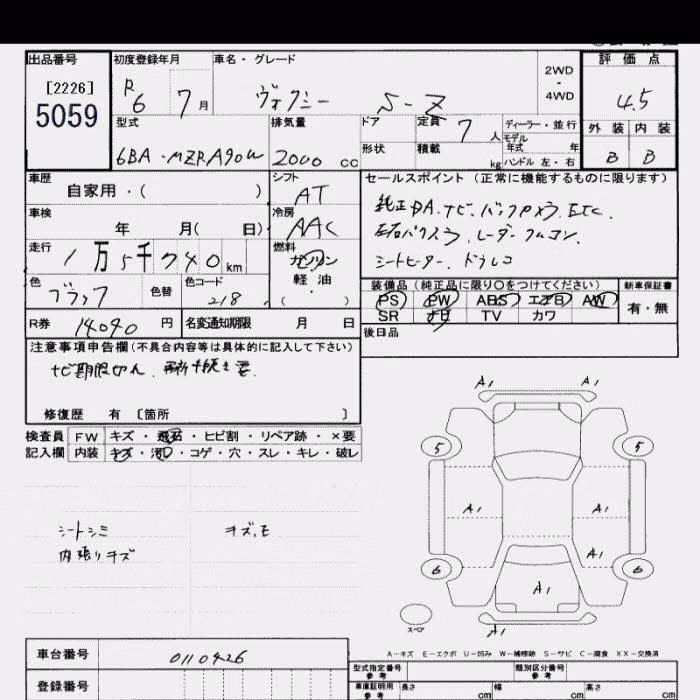 出品番号 初度登録年月 車名・グレード 評価点
[2226]
5059
R6 7月 ヴォクシー S-Z
2WD
・
4WD
4.5
型式 排気量 ドア 定員 7人 ディーラー・並行 外装 内装
6BA-MZRA90W 2000 cc 形状 積載 kg モデル年式 年 ハンドル 左・右 B B
車歴 シフト セールスポイント(正常に機能するものに限ります)
自家用・( ) AT
車検 冷房 純正DA.ナビ.バックカメラ.ETC.
年 月( 日) AAC
走行 1万5千740km 燃料 レーダークルコン.
ガソリン
軽油
・( )
シートヒーター.ドラレコ
色 色替 色コード 装備品(純正品に限り○をつけてください) 新車保証書
ブラック 218 PS PW ABS エアB AW 有・無
SR ナビ TV カワ
R券 14040円 名変通知期限 月 日 後日品
注意事項申告欄(不具合内容等は具体的に記入して下さい)
ナビ期限切れ.
修復歴 有 [箇所 ]
検査員 FW キズ・飛石・ヒビ割・リペア跡・×要
記入欄 内装 キズ・汚れ・コゲ・穴・スレ・キレ・破レ
シートシミ キズ.モ
内張りキズ
A1 A1
5 5
A1 A1
A1
6 6
A1
スペア
A1
A-キズ E-エクボ U-凹み W-補修跡 S-サビ C-腐食 XX-交換済
車台番号 0110426 型式指定番号 参考 類別区分番号 参考
登録番号 車庫証明用 参考 長さ cm 幅 cm 高さ cm